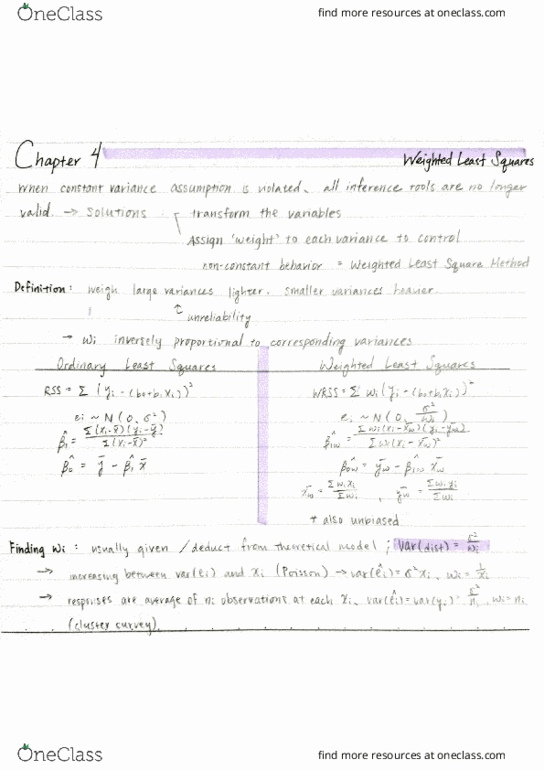 OneClass
find more resources at oneclass.com
Chapter 4
Weighted Least Squares
When constant variance assumption is violated, all inference tools are no longer
valid. → Solutions transform the variables
Assign 'weight' to each variance to control
non-constant behavior = Weighted Least Square Method
Definition: weigh large variances lighter, smaller variances heavier.
unreliability
→ wi inversely proportional to corresponding variances
Ordinary Least Squares Weighted Least Squares
RSS = Σ (yi - (b0+b1xi))² WRSS = Σ wi(yi - (b0+b1xi))²
ei ~ N(0, σ²) ei ~ N(0, σ²/wi)
β̂1 = Σ(xi-x̄)(yi-ȳ)/Σ(xi-x̄)² β̂1w = Σwi(xi-x̄w)(yi-ȳw)/Σwi(xi-x̄w)²
β̂0 = ȳ - β̂1 x̄ β̂0w = ȳw - β̂1w x̄w
x̄w = Σwixi/Σwi , ȳw = Σwiyi/Σwi
+ also unbiased
Finding wi: usually given / deduct from theoretical model ; var(dist) = σ²/wi
→ increasing between var(ei) and xi (Poisson) → var(êi) = σ²xi, wi = 1/xi
→ responses are average of ni observations at each xi, var(êi) = var(yi) = σ²/ni, wi = ni
(cluster survey).
OneClass
find more resources at oneclass.com